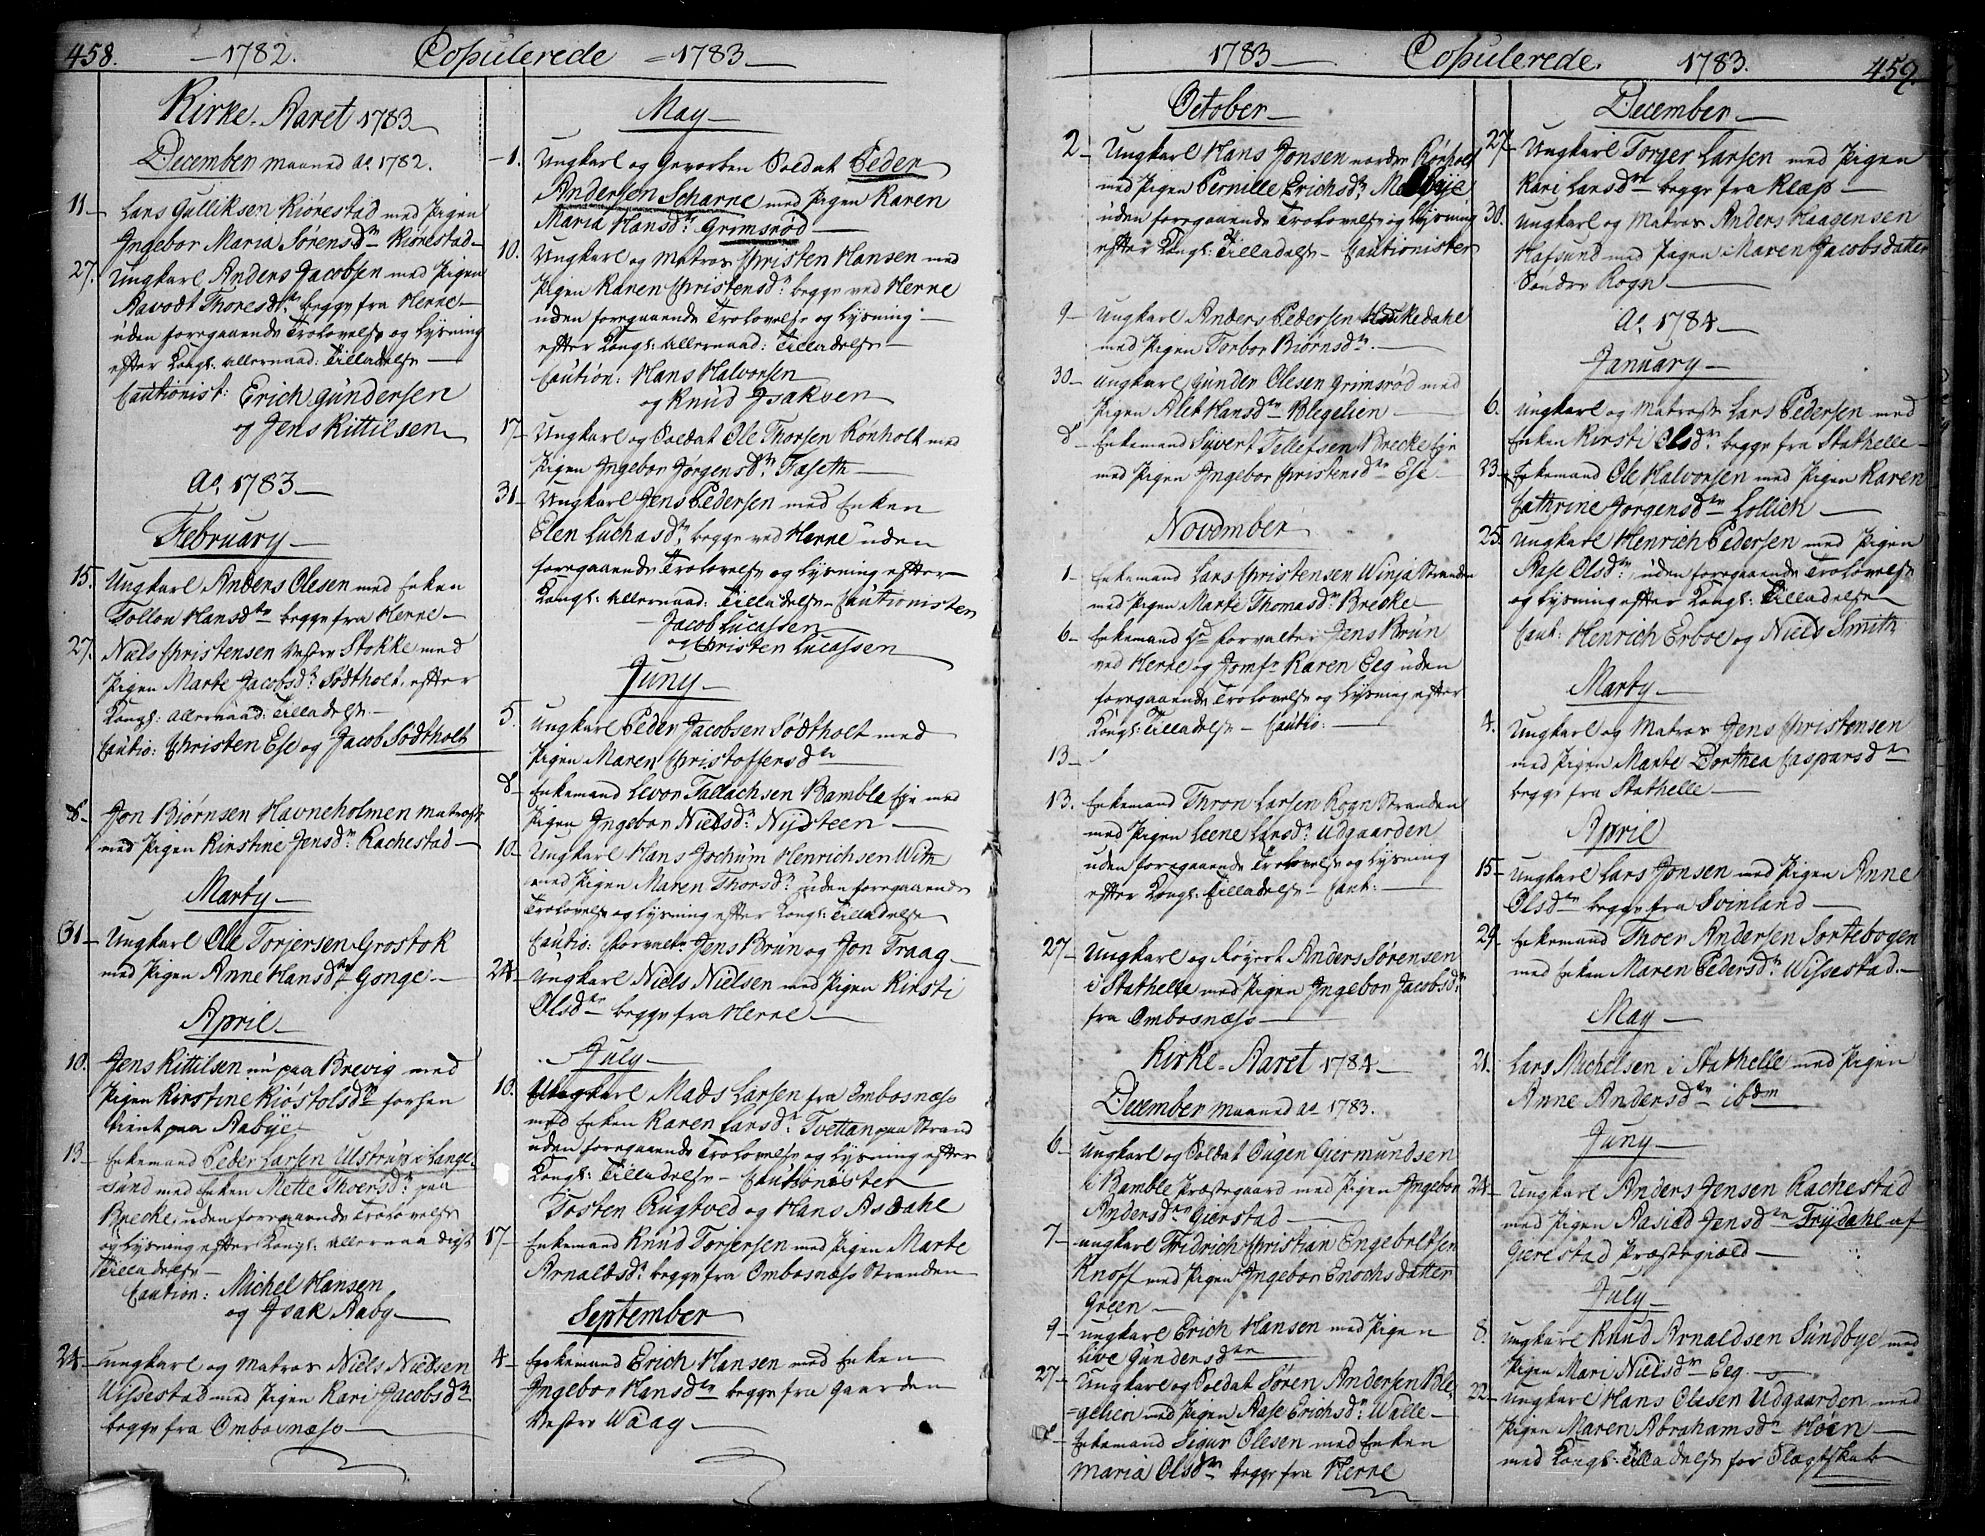 458. — 1782. Copulerede — 1783 —
Kirke-Aaret 1783 —
December maaned Ao 1782.
11 — Lars Gulliksen Kiørestad med Pigen
Ingebor Maria Sørensdtr Kiørestad —
27. Ungkarl Anders Jacobsen med Pigen
Thoresdtr begge fra Herre —
uden foregaaende Trolovelse og Lysning
efter Kongl: allernaad: Tilladelse —
Cautionist: Erich Gundersen
og Jens Kittilsen
Ao 1783 —
February —
15. Ungkarl Anders Olesen med Enken
Hansdtr begge fra Herre —
27. Niels Christensen vestre Stokke med
Pigen Marte Jacobsdtr Sødtholt, efter
Kongl: allernaad: Tilladelse —
Cautio: Christen Ese og Jacob Sødtholt
8 — Jon Biørnsen Havneholmen Matros
med Pigen Kirstine Jensdtr Rachestad —
Marty —
31 — Ungkarl Ole Torjersen Grostok
med Pigen Anne Hansdtr Gonge —
April —
10. Jens Kittilsen nu paa Brevig med
Pigen Kirstine Kiøstolsdtr forhen
tient paa Aabye
13 — Enkemand Peder Larsen Ulstrup i Lange-
sund med Enken Mette Thoersdtr paa
Brecke, uden foregaaende Trolovelse
og Lysning efter Kongl: allernaadigst
Tilladelse —
Caution: Michel Hansen
og Isak Aaby —
24 — Ungkarl og Matros Niels Nielsen
Wissestad med Pigen Kari Jacobsdtr
begge fra Ombosnæss —
May —
1. Ungkarl og Gevorben Soldat Peder
Andersen Scharne med Pigen Karen
Maria Hansdtr Grimsrød —
10. Ungkarl og Matros Christen Hansen med
Pigen Karen Christensdtr begge ved Herre
uden foregaaende Trolovelse og Lysning
efter Kongl: allernaad: Tilladelse —
Caution: Hans Halvorsen
og Knud Isaksen
17 — Ungkarl og Soldat Ole Thorsen Rønholt med
Pigen Ingebor Jørgensdtr Faseth —
31 — Ungkarl Jens Pedersen med Enken
Elen Luchasdtr, begge ved Herre uden
foregaaende Trolovelse og Lysning efter
Kongl: allernaad: Tilladelse — Cautionister
Jacob Lucassen
og Christen Lucassen
Juny —
5. Ungkarl Peder Jacobsen Sødtholt med
Pigen Maren Christoffersdtr
8 — Enkemand Levor Tallachsen Bamble Eje med
Pigen Ingebor Nielsdtr Nysteen —
10 — Ungkarl Hans Jochum Henrichsen With
med Pigen Maren Thorsdtr uden foregaaende
Trolovelse og Lysning efter Kongl: Tilladelse
Cautio: Forvaltr Jens Brun og Jon Traag —
24. Ungkarl Niels Nielsen med Pigen Kirsti
Olsdtr begge fra Herre —
July —
10. Ungkarl Mads Larsen fra Ombosnæss
med Enken Karen Larsdtr Tvettan paa Strand
uden foregaaende Trolovelse og Lysning efter
Kongl: Tilladelse — Cautionister
Tosten Rugtved og Hans Asdahl
17 — Enkemand Knud Torjersen med Pigen Marte
Arnaldsdtr begge fra Ombosnæss Stranden
September
4 — Enkemand Erich Hansen med Enken
Ingebor Hansdtr begge fra Gaarden
Vestre Waag —
1783 — Copulerede. 1783. 459.
October —
2 — Ungkarl Hans Jonsen nordre Rønholt
med Pigen Pernille Erichsdtr
uden foregaaende Trolovelse og Lysning
efter Kongl: Tilladelse — Cautionister
9 — Ungkarl Anders Pedersen
med Pigen Torbor Biørnsdtr. —
30 — Ungkarl Gunder Olesen Grimsrød med
Pigen Alet Hansdtr Blegelien —
8 — Enkemand Syvert Tellefsen Brecke Eje
med Pigen Ingebor Christensdtr Ese —
Novomber
1 — Enkemand Lars Christensen Winja Stranden
med Pigen Marte Thomasdtr Brecke —
6 — Enkemand Hr Forvalter Jens Brun
ved Herre og Jomfr Karen Eeg uden
foregaaende Trolovelse og Lysning efter
Kongl: Tilladelse — Cautio: —
13 —
13. Enkemand Thron Larsen Rogn Stranden
med Pigen Leene Larsdtr Udgaarden
uden foregaaende Trolovelse og Lysning
efter Kongl: Tilladelse — Caut: —
27 — Ungkarl og Anders Sørensen
i Stathelle med Pigen Ingebor Jacobsdtr
fra Ombosnæss —
Kirke-Aaret 1784 —
December maaned ao 1783.
6 — Ungkarl og Soldat Giermundsen
i Bamble Præstegaard med Pigen Ingebor
Andersdtr Gierstad —
7 — ungkarl Fridrich Christian Engebrettsen
Knoff med Pigen Ingebor Enochsdatter
Green —
9 — ungkarl Erich Hansen med Pigen
Live Gundersdtr
27 — Ungkarl og Soldat Søren Andersen Ble-
gelien med Pigen Aase Erichsdtr Walle —
Enkemand Sigur Olesen med Enken
Maria Olsdtr begge fra Herre
December —
27 — Ungkarl Torger Larsen med Pigen
Kari Larsdtr begge fra Klæp —
30. Ungkarl og Matros Anders Haagensen
Hafsund med Pigen Maren Jacobsdatter
Søndre Rogn —
Ao 1784 —
January —
6. Ungkarl og Matros Lars Pedersen med
Enken Kirsti Olsdtr begge fra Stathelle —
23 — Enkemand Ole Halvorsen med Pigen Karen
Cathrine Jørgensdtr Lollich —
25. Ungkarl Henrich Pedersen med Pigen
Aase Olsdtr, uden foregaaende Trolovelse
og Lysning efter Kongl: Tilladelse —
Caut: Henrich Erboe og Niels Smith
Marty —
4. Ungkarl og Matros Jens Christensen
med Pigen Marte Dorthea Caspersdtr
begge fra Stathelle —
April
15 — Ungkarl Lars Jonsen med Pigen Anne
Olsdtr begge fra Svinland —
29 — Enkemand Thoer Andersen Sortebogen
med Enken Maren Pedersdtr Wissestad. —
May —
21. Lars Michelsen i Stathelle med Pigen
Anne Andersdtr ibdm
Juny —
24 — Ungkarl Anders Jensen Rachestad
med Pigen Aasiød Jensdtr Frydahl af
Gierestad Præstegield —
July —
8. Ungkarl Knud Arnaldsen Sundbye med
Pigen Mari Nielsdtr Eeg. —
22 — Ungkarl Hans Olesen Udgaarden med
Pigen Maren Abrahamsdtr Høen —
med Kongl: Tilladelse for Slægtskab